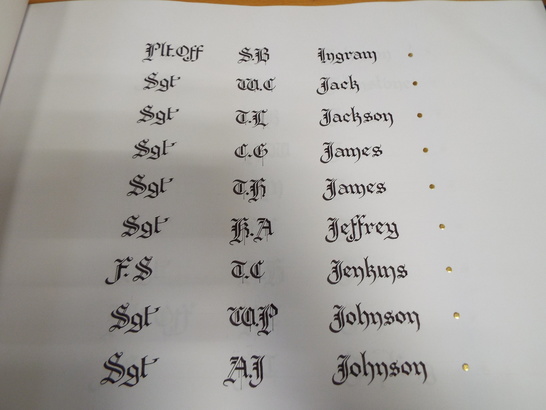 Plt.Off S.B Ingram
Sgt W.C Jack
Sgt T.L Jackson
Sgt C.G James
Sgt T.H James
Sgt R.A Jeffrey
F.S T.C Jenkins
Sgt W.P Johnson
Sgt A.J Johnson